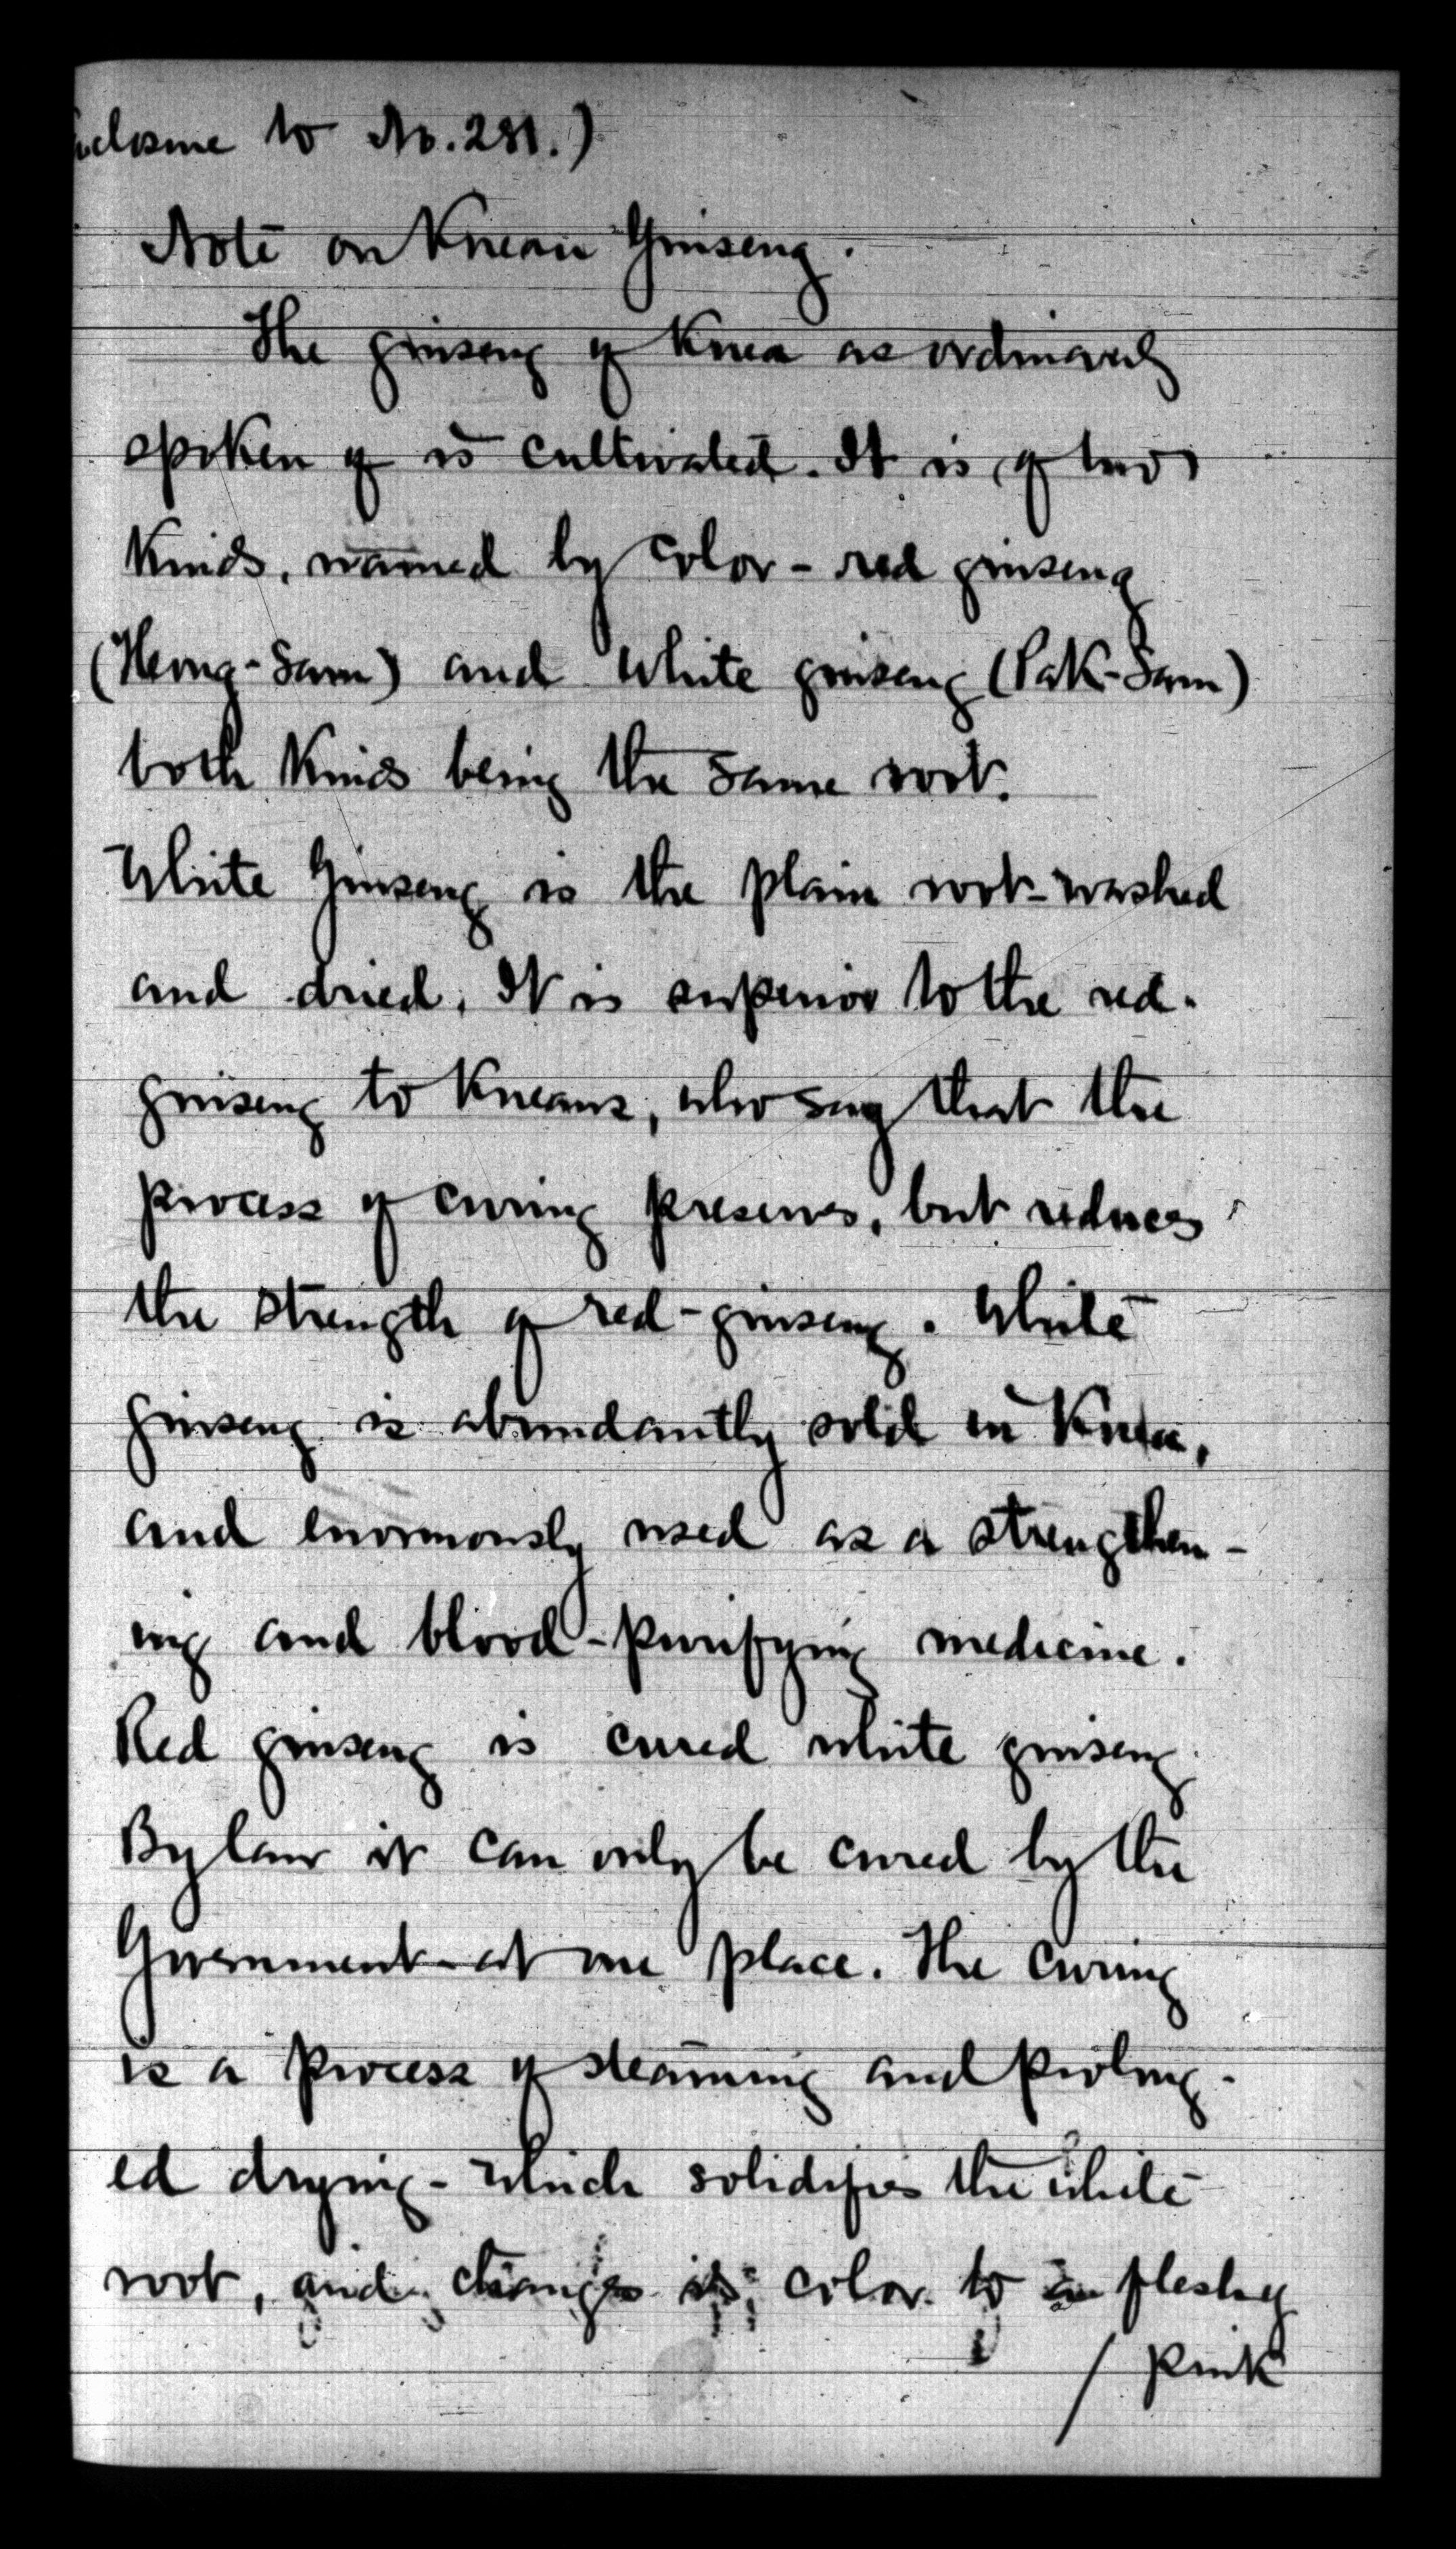 closure to No. 281.)
Note on Korean Ginseng.
The ginseng of Korea as ordinarily
spoken of is cultivated. It is of two
kinds, named by color - red ginseng
(Hong-Sam) and white ginseng (Pak-Sam)
both kinds being the same root.
White Ginseng is the plain root - washed
and dried. It is superior to the red-
ginseng to Koreans, who say that the
process of curing preserves, but reduces
the strength of red-ginseng. White
ginseng is abundantly sold in Korea,
and enormously used as a strengthen-
ing and blood-purifying medicine.
Red ginseng is cured white ginseng
By law it can only be cured by the
Government - at one place. The curing
is a process of steaming and prolong-
ed drying - which solidifies the white
root, and changes its color to a fleshy
/ pink